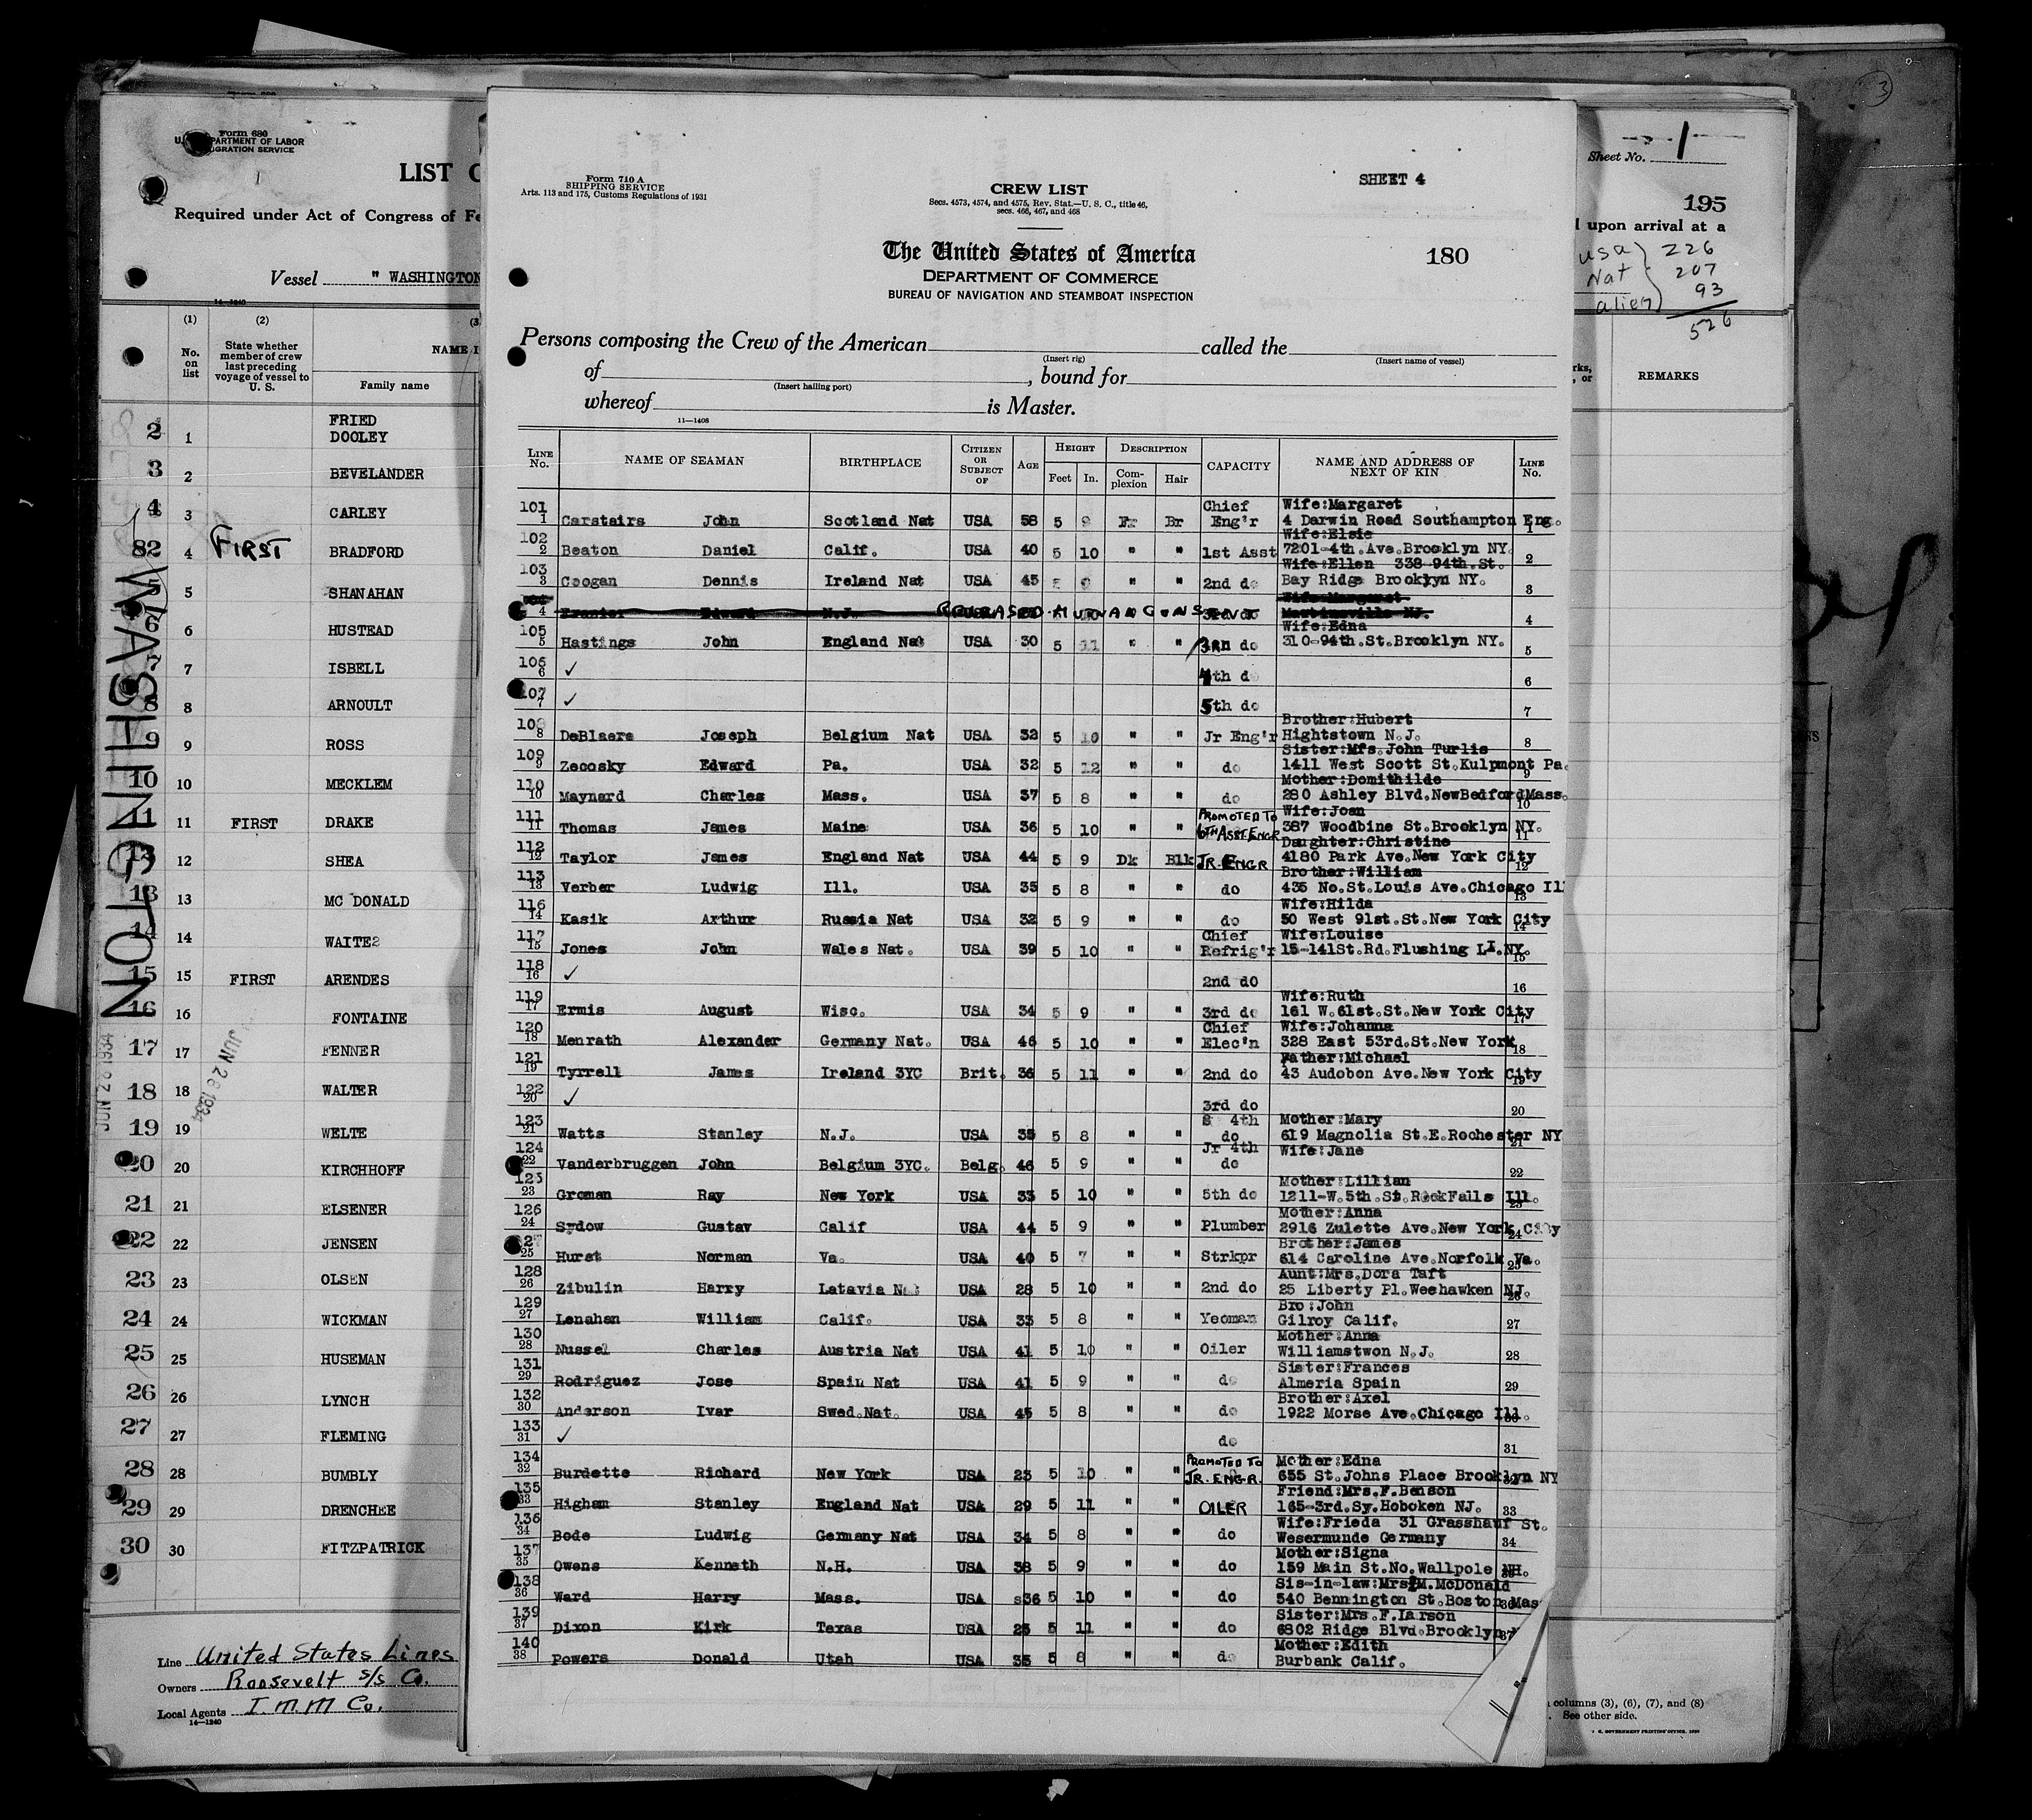 Form 680
U. PARTMENT OF LABOR
GRATION SERVICE
LIST
Required under Act of Congress of Fe
Vessel " WASHINGTON
14—1240
(1) (2) (3
No. on list
State whether member of crew last preceding voyage of vessel to U. S.
NAME I
Family name
FRIED
2 1 DOOLEY
3 2 BEVELANDER
4 3 CARLEY
82 4 FIRST BRADFORD
5 5 SHANAHAN
6 6 HUSTEAD
7 7 ISBELL
8 8 ARNOULT
9 9 ROSS
10 10 MECKLEM
11 11 FIRST DRAKE
12 SHEA
13 13 MC DONALD
14 14 WAITE
15 15 FIRST ARENDES
16 16 FONTAINE
17 17 FENNER
18 18 WALTER
19 19 WELTE
20 20 KIRCHHOFF
21 21 ELSENER
22 22 JENSEN
23 23 OLSEN
24 24 WICKMAN
25 25 HUSEMAN
26 26 LYNCH
27 27 FLEMING
28 28 BUMBLY
29 29 DRENCHEE
30 30 FITZPATRICK
WASHINGTON
JUN 26 1934
JUN 26 1934
Line United States Lines
Owners Roosevelt S/S Co.
Local Agents I.M.M Co.
14—1240
Form 710 A
SHIPPING SERVICE
Arts. 113 and 175, Customs Regulations of 1931
CREW LIST
Secs. 4573, 4574, and 4575, Rev. Stat.—U. S. C., title 46,
secs. 466, 467, and 468
SHEET 4
The United States of America
180
DEPARTMENT OF COMMERCE
BUREAU OF NAVIGATION AND STEAMBOAT INSPECTION
Persons composing the Crew of the American called the
(Insert rig) (Insert name of vessel)
of , bound for
(Insert hailing port)
whereof is Master.
11—1408
LINE No. NAME OF SEAMAN BIRTHPLACE CITIZEN OR SUBJECT OF AGE HEIGHT Feet In. DESCRIPTION Complexion Hair CAPACITY NAME AND ADDRESS OF NEXT OF KIN LINE No.
101 Chief Wife:Margaret
1 Carstairs John Scotland Nat USA 58 5 9 Fr Br Eng'r 4 Darwin Road Southampton Eng. 1
102 Wife:Elsie
2 Beaton Daniel Calif. USA 40 5 10 " " 1st Asst 7201-4th.Ave.Brooklyn NY. 2
103 Wife:Ellen 338-94th.St.
3 Coogan Dennis Ireland Nat USA 45 5 9 " " 2nd do Bay Ridge Brooklyn NY. 3
Wife:Margaret
4 Edward N.J. 3rd do Martinsville NJ. 4
105 Wife:Edna
5 Hastings John England Nat USA 30 5 11 " " 3RD do 310-94th.St.Brooklyn NY. 5
106
6 ✓ 4th do 6
107
7 ✓ 5th do 7
108 Brother:Hubert
8 DeBlaere Joseph Belgium Nat USA 32 5 10 " " Jr Eng'r Hightstown N.J. 8
109 Sister:Mrs.John Turlis
9 Zecosky Edward Pa. USA 32 5 12 " " do 1411 West Scott St.Kulpmont Pa. 9
110 Mother:Domithilde
10 Maynard Charles Mass. USA 37 5 8 " " do 280 Ashley Blvd.NewBedfordMass. 10
111 PROMOTED TO Wife:Joan
11 Thomas James Maine USA 36 5 10 " " 6TH ASST.ENGR 387 Woodbine St.Brooklyn NY. 11
112 Daughter:Christine
12 Taylor James England Nat USA 44 5 9 Dk Blk JR.ENGR 4180 Park Ave.New York City 12
113 Brother:William
13 Verber Ludwig Ill. USA 35 5 8 " " do 435 No.St.Louis Ave.Chicago Ill 13
116 Wife:Hilda
14 Kasik Arthur Russia Nat USA 32 5 9 " " do 50 West 91st.St.New York City 14
117 Chief Wife:Louise
15 Jones John Wales Nat. USA 39 5 10 " " Refrig'r 15-141St.Rd.Flushing L.I.NY. 15
118
16 ✓ 2nd do 16
119 Wife:Ruth
17 Ermis August Wisc. USA 34 5 9 " " 3rd do 161 W.61st.St.New York City 17
120 Chief Wife:Johanna
18 Menrath Alexander Germany Nat. USA 46 5 10 " " Elec'n 328 East 53rd.St.New York 18
121 Father:Michael
19 Tyrrell James Ireland 3YC Brit. 36 5 11 " " 2nd do 43 Audobon Ave.New York City 19
122
20 ✓ 3rd do 20
123 S 4th Mother:Mary
21 Watts Stanley N.J. USA 35 5 8 " " do 619 Magnolia St.E.Rochester NY 21
124 Jr 4th Wife:Jane
22 Vanderbruggen John Belgium 3YC. Belg. 46 5 9 " " do 22
125 Mother:Lillian
23 Groman Ray New York USA 33 5 10 " " 5th do 1211-W.5th.St.RockFalls Ill. 23
126 Mother:Anna
24 Sydow Gustav Calif USA 44 5 9 " " Plumber 2916 Zulette Ave.New York City 24
127 Brother:James
25 Hurst Norman Va. USA 40 5 7 " " Strkpr 614 Caroline Ave.Norfolk Va. 25
128 Aunt:Mrs.Dora Taft
26 Zibulin Harry Latavia Nat USA 28 5 10 " " 2nd do 25 Liberty Pl.Weehawken NJ. 26
129 Bro:John
27 Lenahan William Calif. USA 33 5 8 " " Yeoman Gilroy Calif. 27
130 Mother:Anna
28 Nussel Charles Austria Nat USA 41 5 10 " " Oiler Williamstwon N.J. 28
131 Sister:Frances
29 Rodriguez Jose Spain Nat USA 41 5 9 " " do Almeria Spain 29
132 Brother:Axel
30 Anderson Ivar Swed.Nat. USA 45 5 8 " " do 1922 Morse Ave.Chicago Ill. 30
133
31 ✓ do 31
134 PROMOTED TO Mother:Edna
32 Burdette Richard New York USA 23 5 10 " " JR.ENGR. 655 St.Johns Place Brooklyn NY 32
135 Friend:Mrs.F.Benson
33 Higham Stanley England Nat USA 29 5 11 " " OILER 165-3rd.Sy.Hoboken NJ. 33
136 Wife:Frieda 31 Grasshauf St.
34 Bode Ludwig Germany Nat USA 34 5 8 " " do Wesermunde Germany 34
137 Mother:Signa
35 Owens Kenneth N.H. USA 38 5 9 " " do 159 Main St.No.Wallpole NH. 35
138 Sis-in-law:Mrs.M.McDonald
36 Ward Harry Mass. USA s36 5 10 " " do 540 Bennington St.Boston Mas 36
139 Sister:Mrs.F.Larson
37 Dixon Kirk Texas USA 25 5 11 " " do 6802 Ridge Blvd.Brooklyn 37
140 Mother:Edith
38 Powers Donald Utah USA 35 5 8 " " do Burbank Calif.
3
Sheet No. 1
195
upon arrival at a
USA 226
Nat 207
alien 93
526
rks, , or
REMARKS
columns (3), (6), (7), and (8)
See other side.
GOVERNMENT PRINTING OFFICE